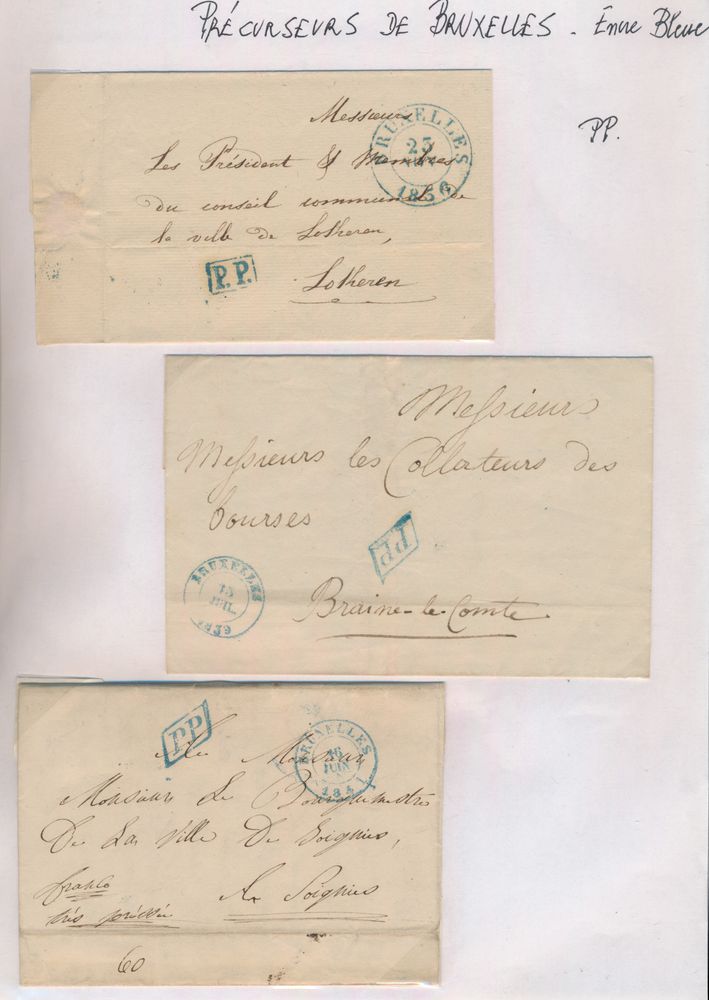 PRÉCURSEURS DE BRUXELLES - Encre Bleue
PP.
Messieurs
BRUXELLES
23
1836
Les Président & Membres
du conseil communal de
la ville de Lokeren,
P.P.
Lokeren
Messieurs
Messieurs les Collateurs des
bourses
PP
BRUXELLES
15
JUIL.
1839
Braine-le-Comte
PP
BRUXELLES
16
JUIN
184
A Monsieur
Monsieur Le Bourguemestre
De La Ville De Soignies,
franco
très pressée
A Soignies
60